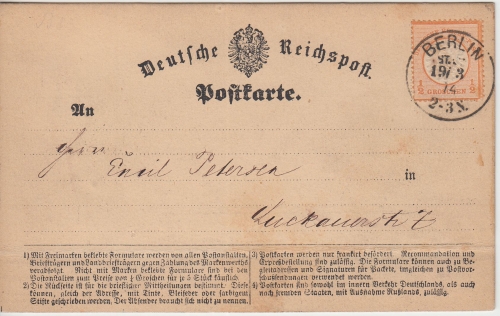 Deutsche Reichspost.
Postkarte.
BERLIN
19/3
2-3 N.
GROSCHEN
An
Herrn Emil Petersen
in
Luckauerstr 7
1) Mit Freimarken beklebte Formulare werden von allen Postanstalten,
Briefträgern und Landbriefträgern gegen Zahlung des Markenwerths
verabfolgt. Nicht mit Marken beklebte Formulare sind bei den
Postanstalten zum Preise von ½ Groschen für je 5 Stück käuflich
2) Die Rückseite ist für die brieflicher Mittheilungen bestimmt. Diese
können, gleich der Adresse, mit Dinte, Bleifeder oder farbigem
Stifte geschrieben werden. Der Absender braucht sich nicht zu nennen.
3) Postkarten werden nur frankirt befördert. Recommandation und
Expreßbestellung sind zulässig. Die Formulare können auch zu
Begleitadressen und Signaturen für Packete, imgleichen zu Postvor-
schußsendungen verwendet werden.
4) Postkarten sind sowohl im innern Verkehr Deutschlands, als auch
nach fremden Staaten, mit Ausnahme Rußlands, zulässig.